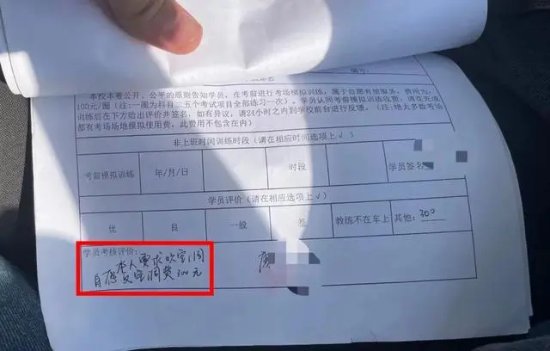 本校本着公开、公平的原则告知学员，在考前进行考场模拟训练，属于自愿有偿服务，费用为
100元/圈（注：一圈为科目二五个考试项目全部练习一次）。学员认同考前模拟训练收费，请在完成
训练后在下方给出评价并签名，如有异议，请24小时之内到学校前台进行反馈。（注：绝大多数考场
都有考场场地模拟使用费，此费用不包含在内）
非上班时间训练时段（请在相应时间选项上√）
考前模拟训练 年/月/日 时段 学员签名
学员评价（请在相应选项上√）
优 良 一般 差 教练不在车上 其他：300
学员考核评价：
本人要求
自愿 元